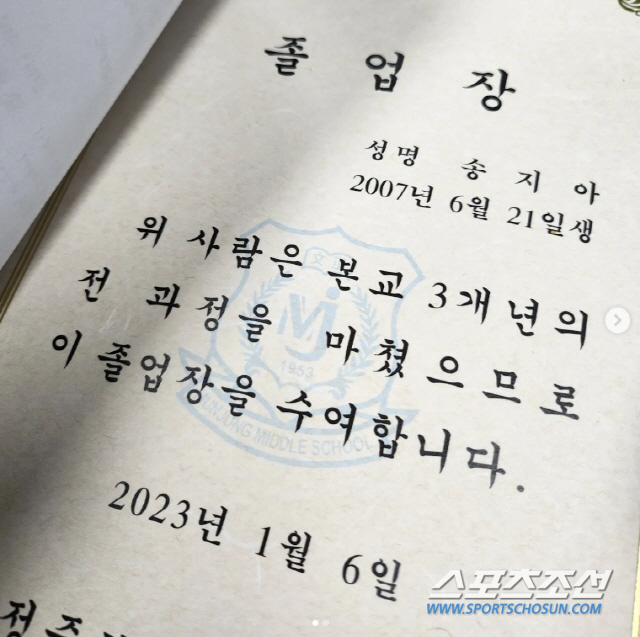 졸 업 장
성명 송 지 아
2007년 6월 21일생
위 사람은 본교 3개년의
전 과정을 마쳤으므로
이 졸업장을 수여합니다.
文
MJ
1953
MIDDLE SCHOOL
2023년 1월 6일
스포츠조선
WWW.SPORTSCHOSUN.COM